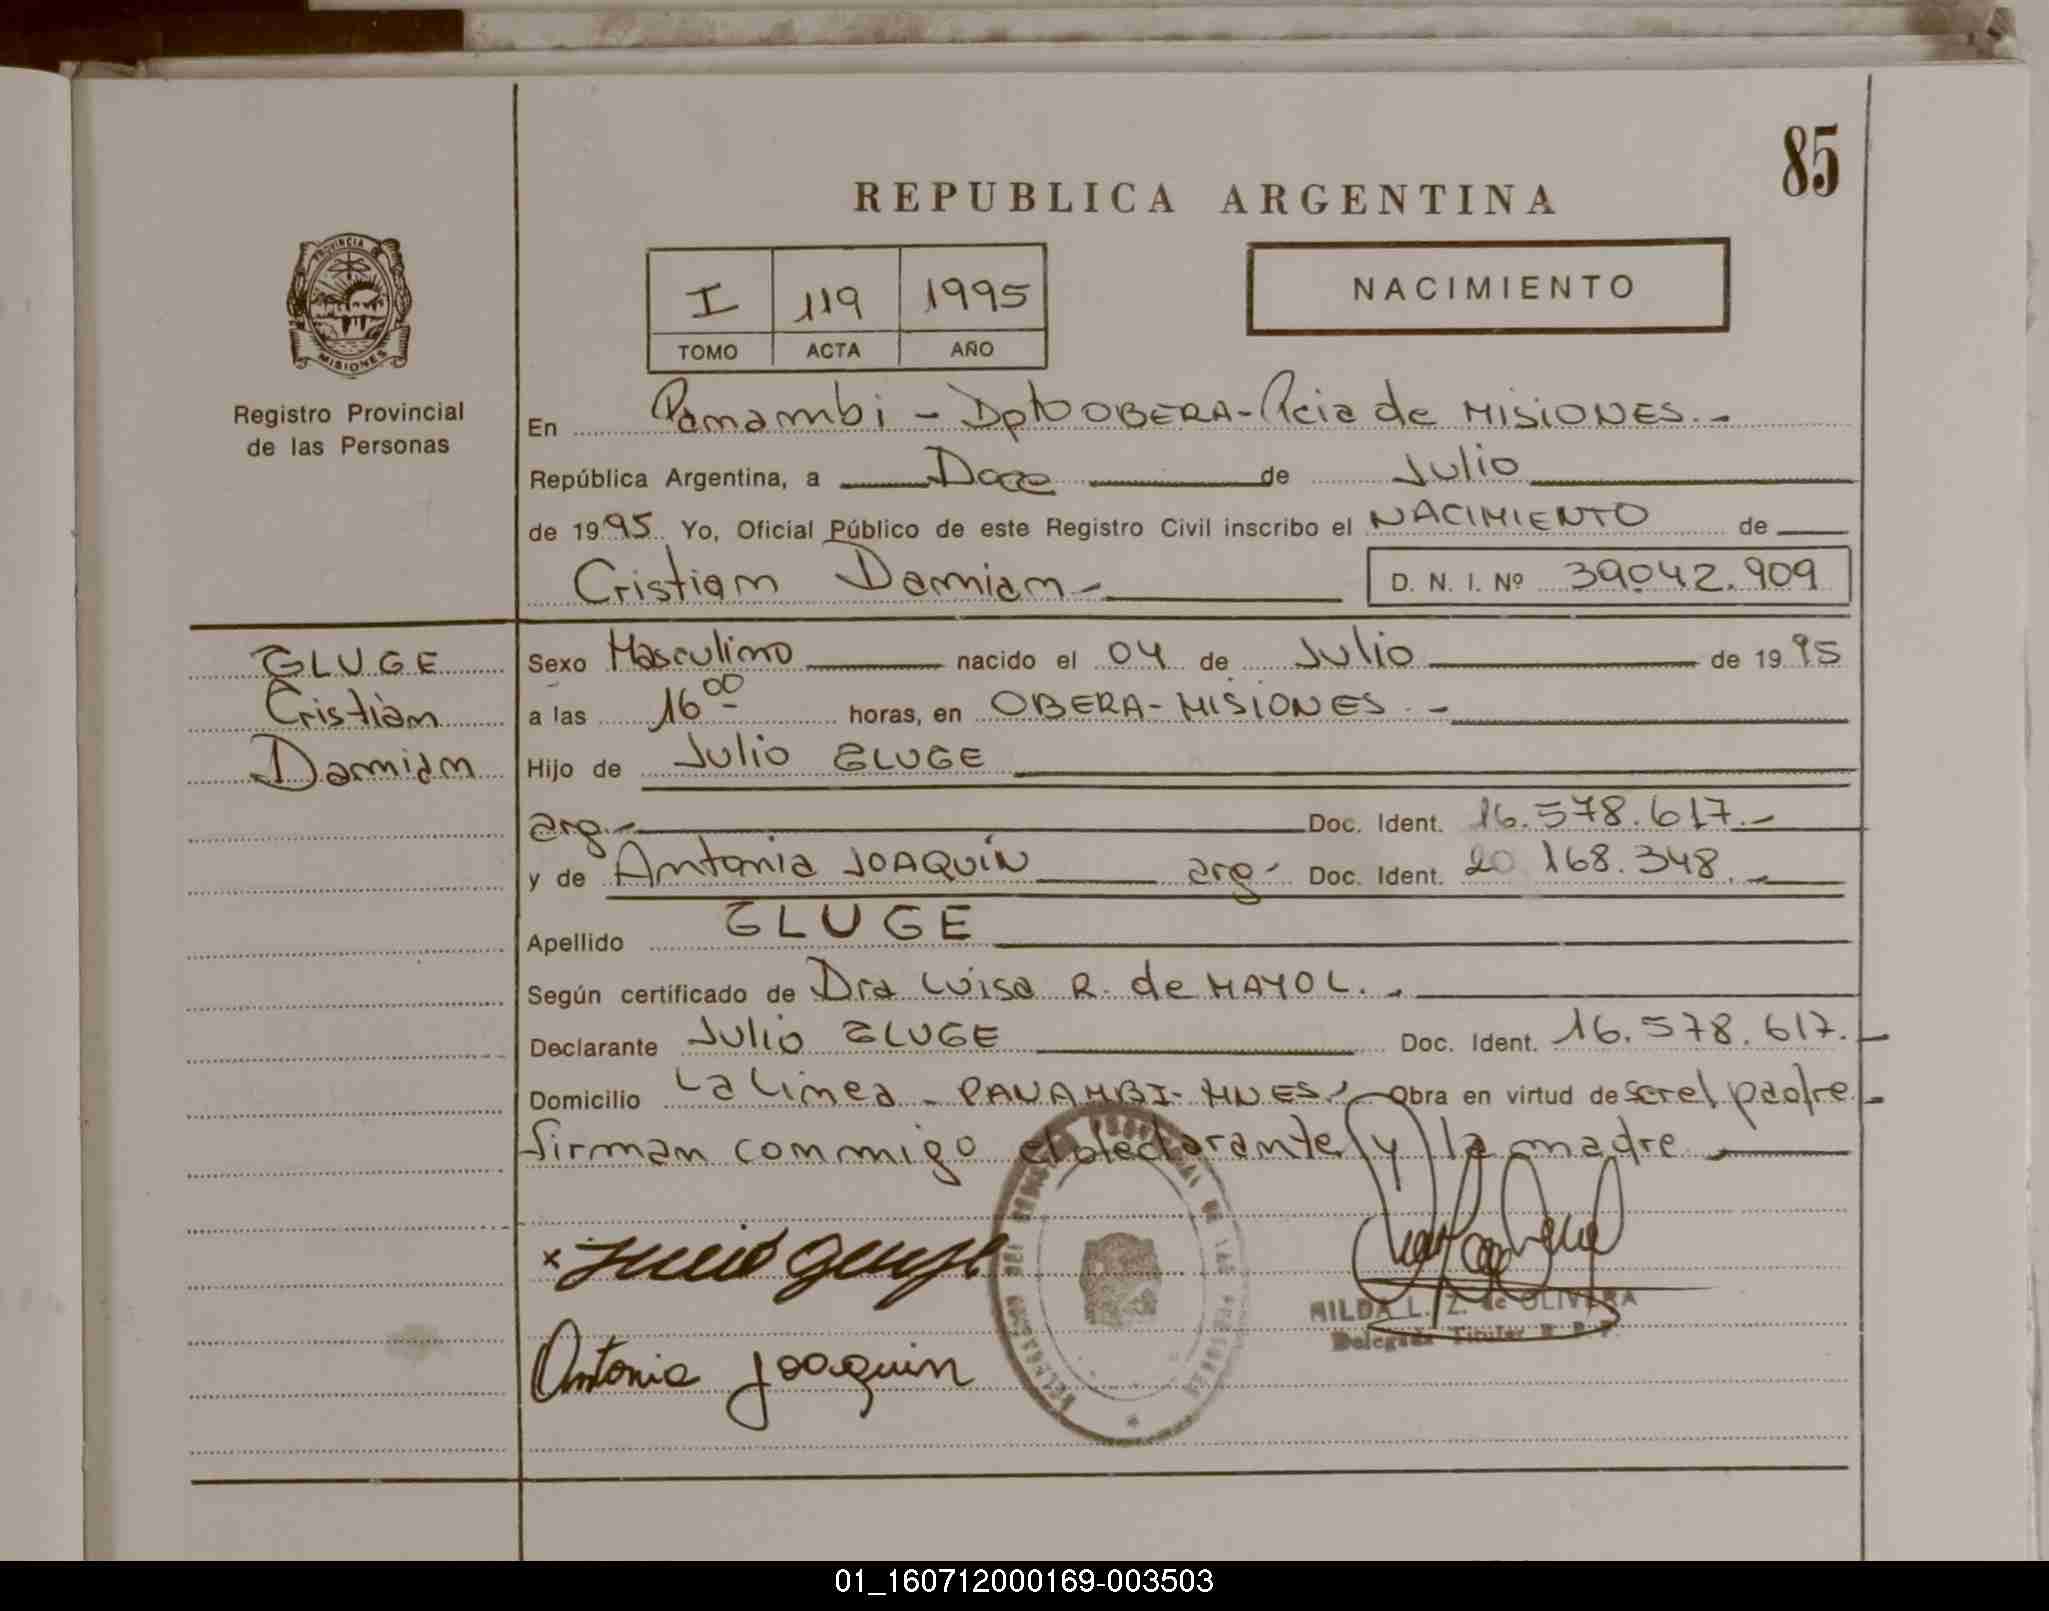 85
REPUBLICA ARGENTINA
PROVINCIA DE
MISIONES
I 119 1995
TOMO ACTA AÑO
NACIMIENTO
Registro Provincial
de las Personas
En Panambi - Dpto OBERA - Pcia de MISIONES.-
República Argentina, a Doce de Julio
de 1995 Yo, Oficial Público de este Registro Civil inscribo el NACIMIENTO de
Cristian Damian- D. N. I. Nº 39042.909
GLUGE
Cristian
Damian
Sexo Masculino nacido el 04 de Julio de 1995
a las 16 00 horas, en OBERA - MISIONES.-
Hijo de Julio GLUGE
arg.- Doc. Ident. 16.578.617.-
y de Antonia JOAQUÍN arg- Doc. Ident. 20 168.348.-
Apellido GLUGE
Según certificado de Dra Luisa R. de MAYOL.-
Declarante Julio GLUGE Doc. Ident. 16.578.617.-
Domicilio La Linea - PANAMBI - MNES.- Obra en virtud de ser el padre.-
firman conmigo el declarante y la madre
x Julio Gluge
Antonia Joaquin
PROVINCIAL DE LAS
MILDA L. Z. de OLIVERA
Delegada Titular R. P. P.
01_160712000169-003503